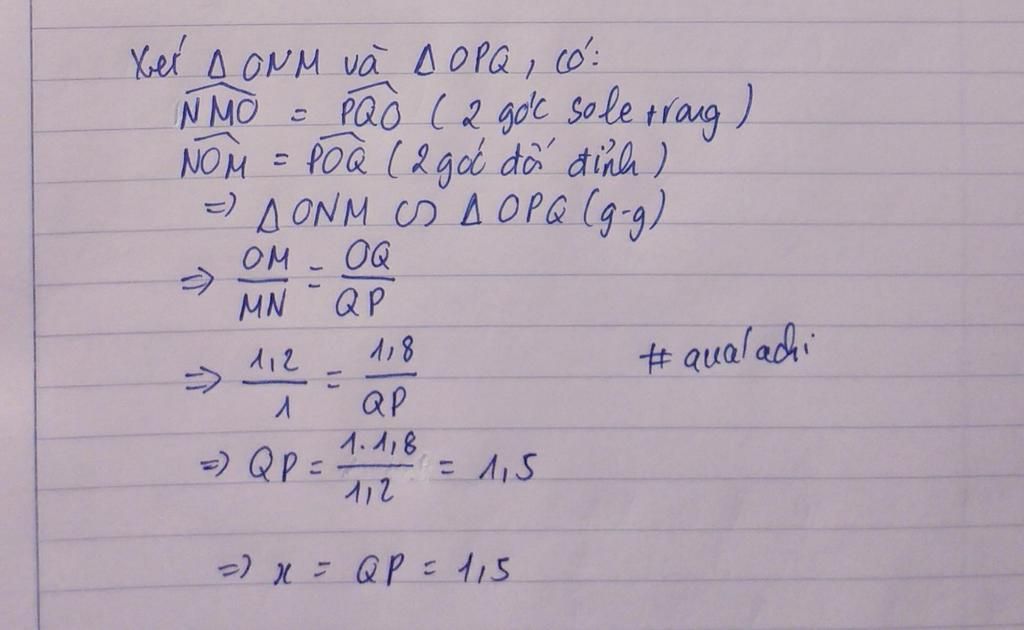 Xét Δ ONM và Δ OPQ, có:
\widehat{NMO} = \widehat{PQO} ( 2 góc sole trong )
\widehat{NOM} = \widehat{POQ} ( 2 góc đối đỉnh )
=> Δ ONM ∽ Δ OPQ (g-g)
=> \frac{OM}{MN} = \frac{OQ}{QP}
=> \frac{1,2}{1} = \frac{1,8}{QP}
# qualachi
=> QP = \frac{1.1,8}{1,2} = 1,5
=> x = QP = 1,5